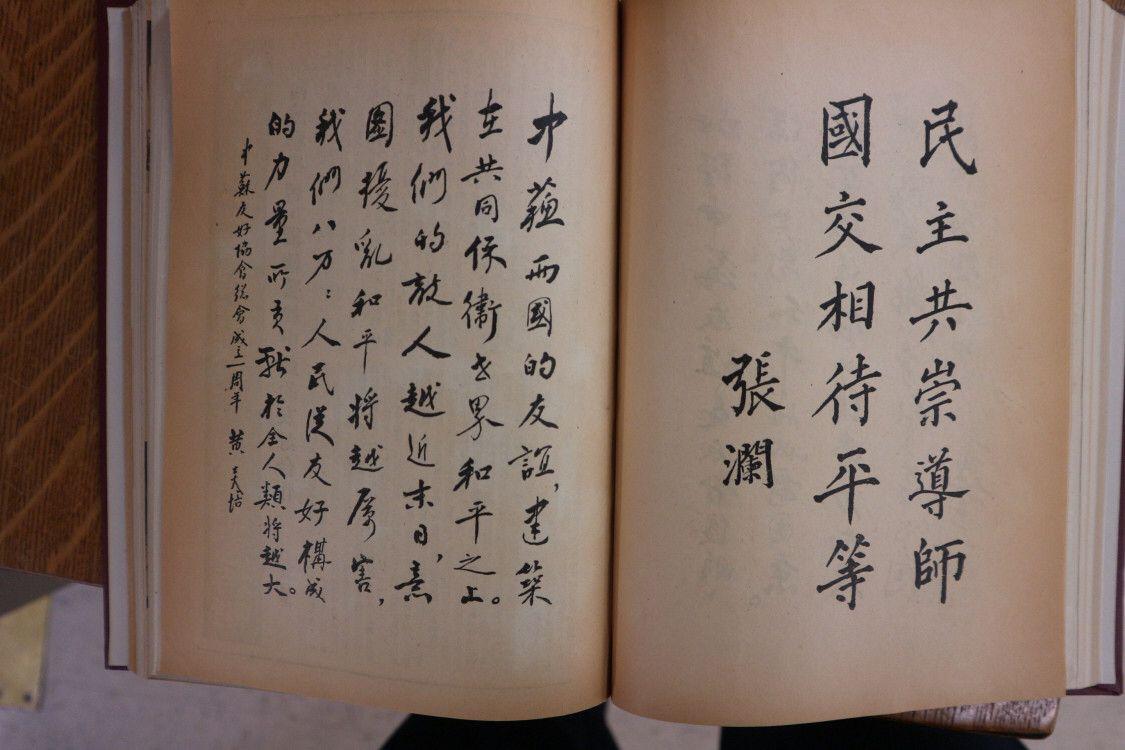 民主共崇導師
國交相待平等
張瀾
中蘓兩國的友誼,建築
在共同保衛世界和平之上。
我們的敵人越近末日,意
圖擾亂和平將越厲害,
我們八万〻人民從友好構成
的力量所貢獻於全人類將越大。
中蘇友好協會總會成立一周年 黄炎培